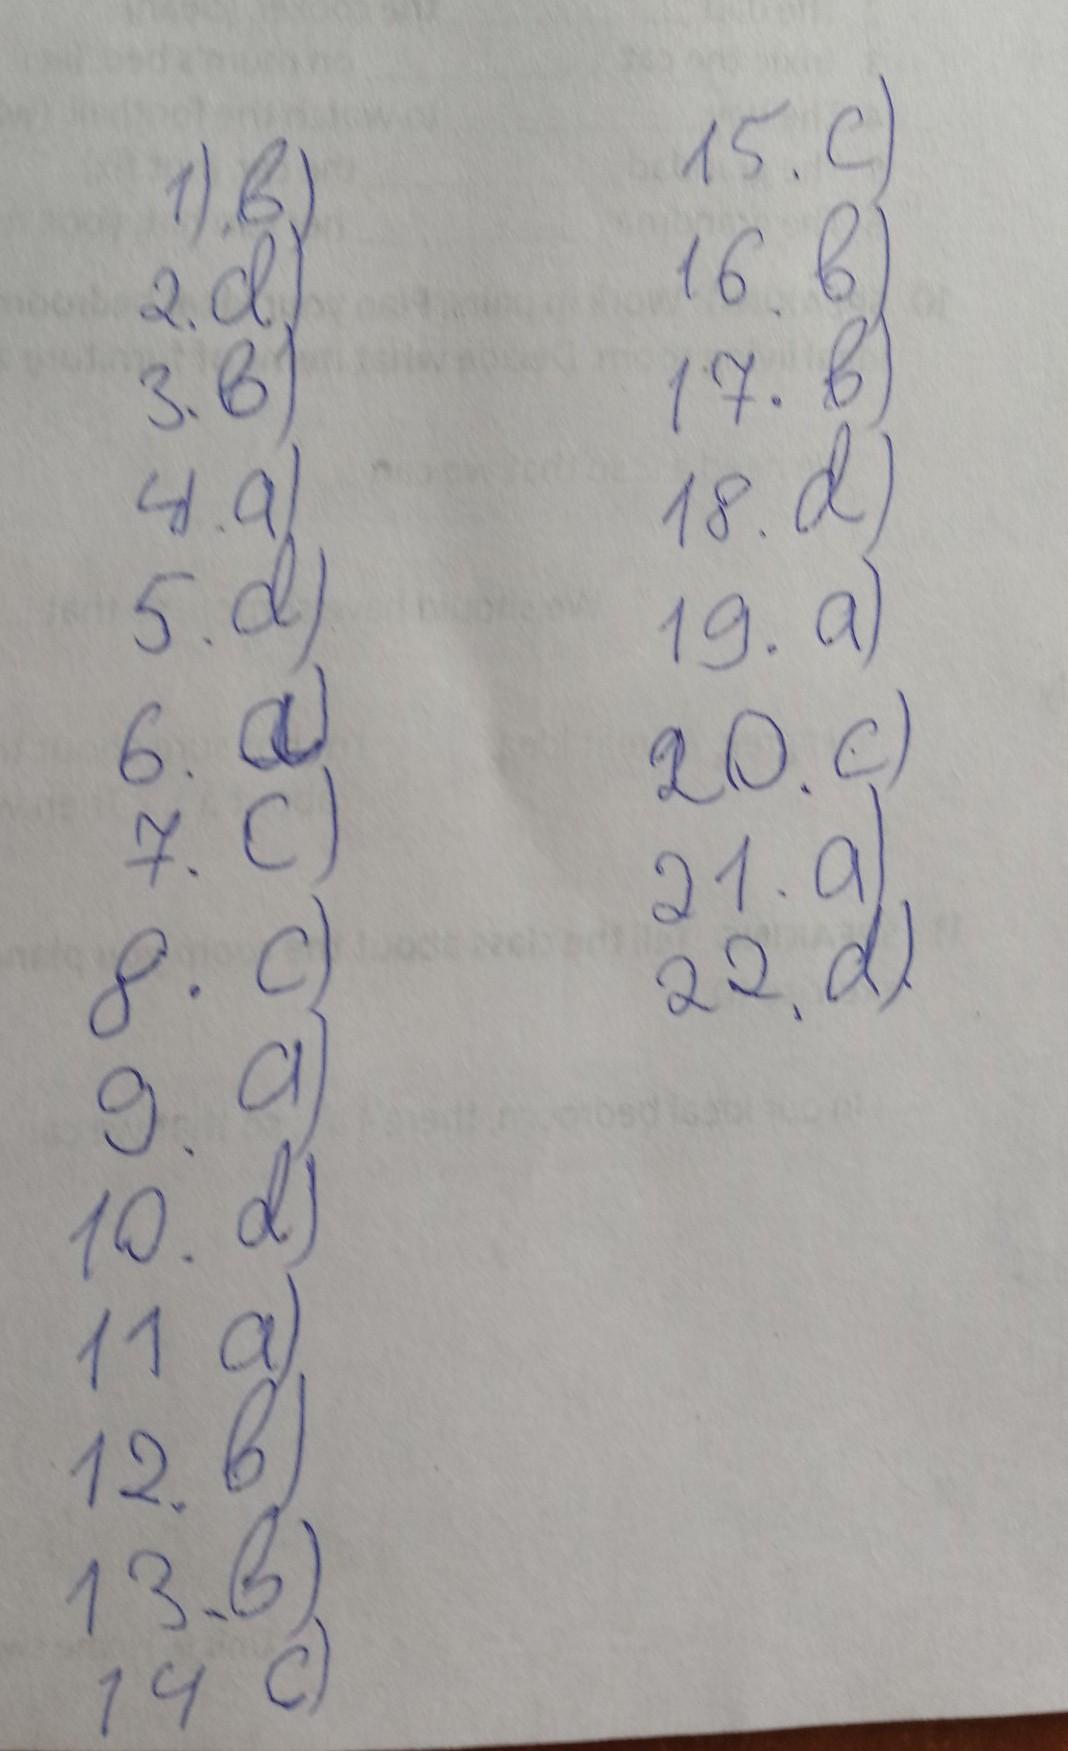 1) b)
2. d)
3. b)
4. a)
5. d)
6. a)
7. c)
8. c)
9. a)
10. d)
11 a)
12. b)
13. b)
14 c)
15. c)
16. b)
17. b)
18. d)
19. a)
20. c)
21. a)
22. d)